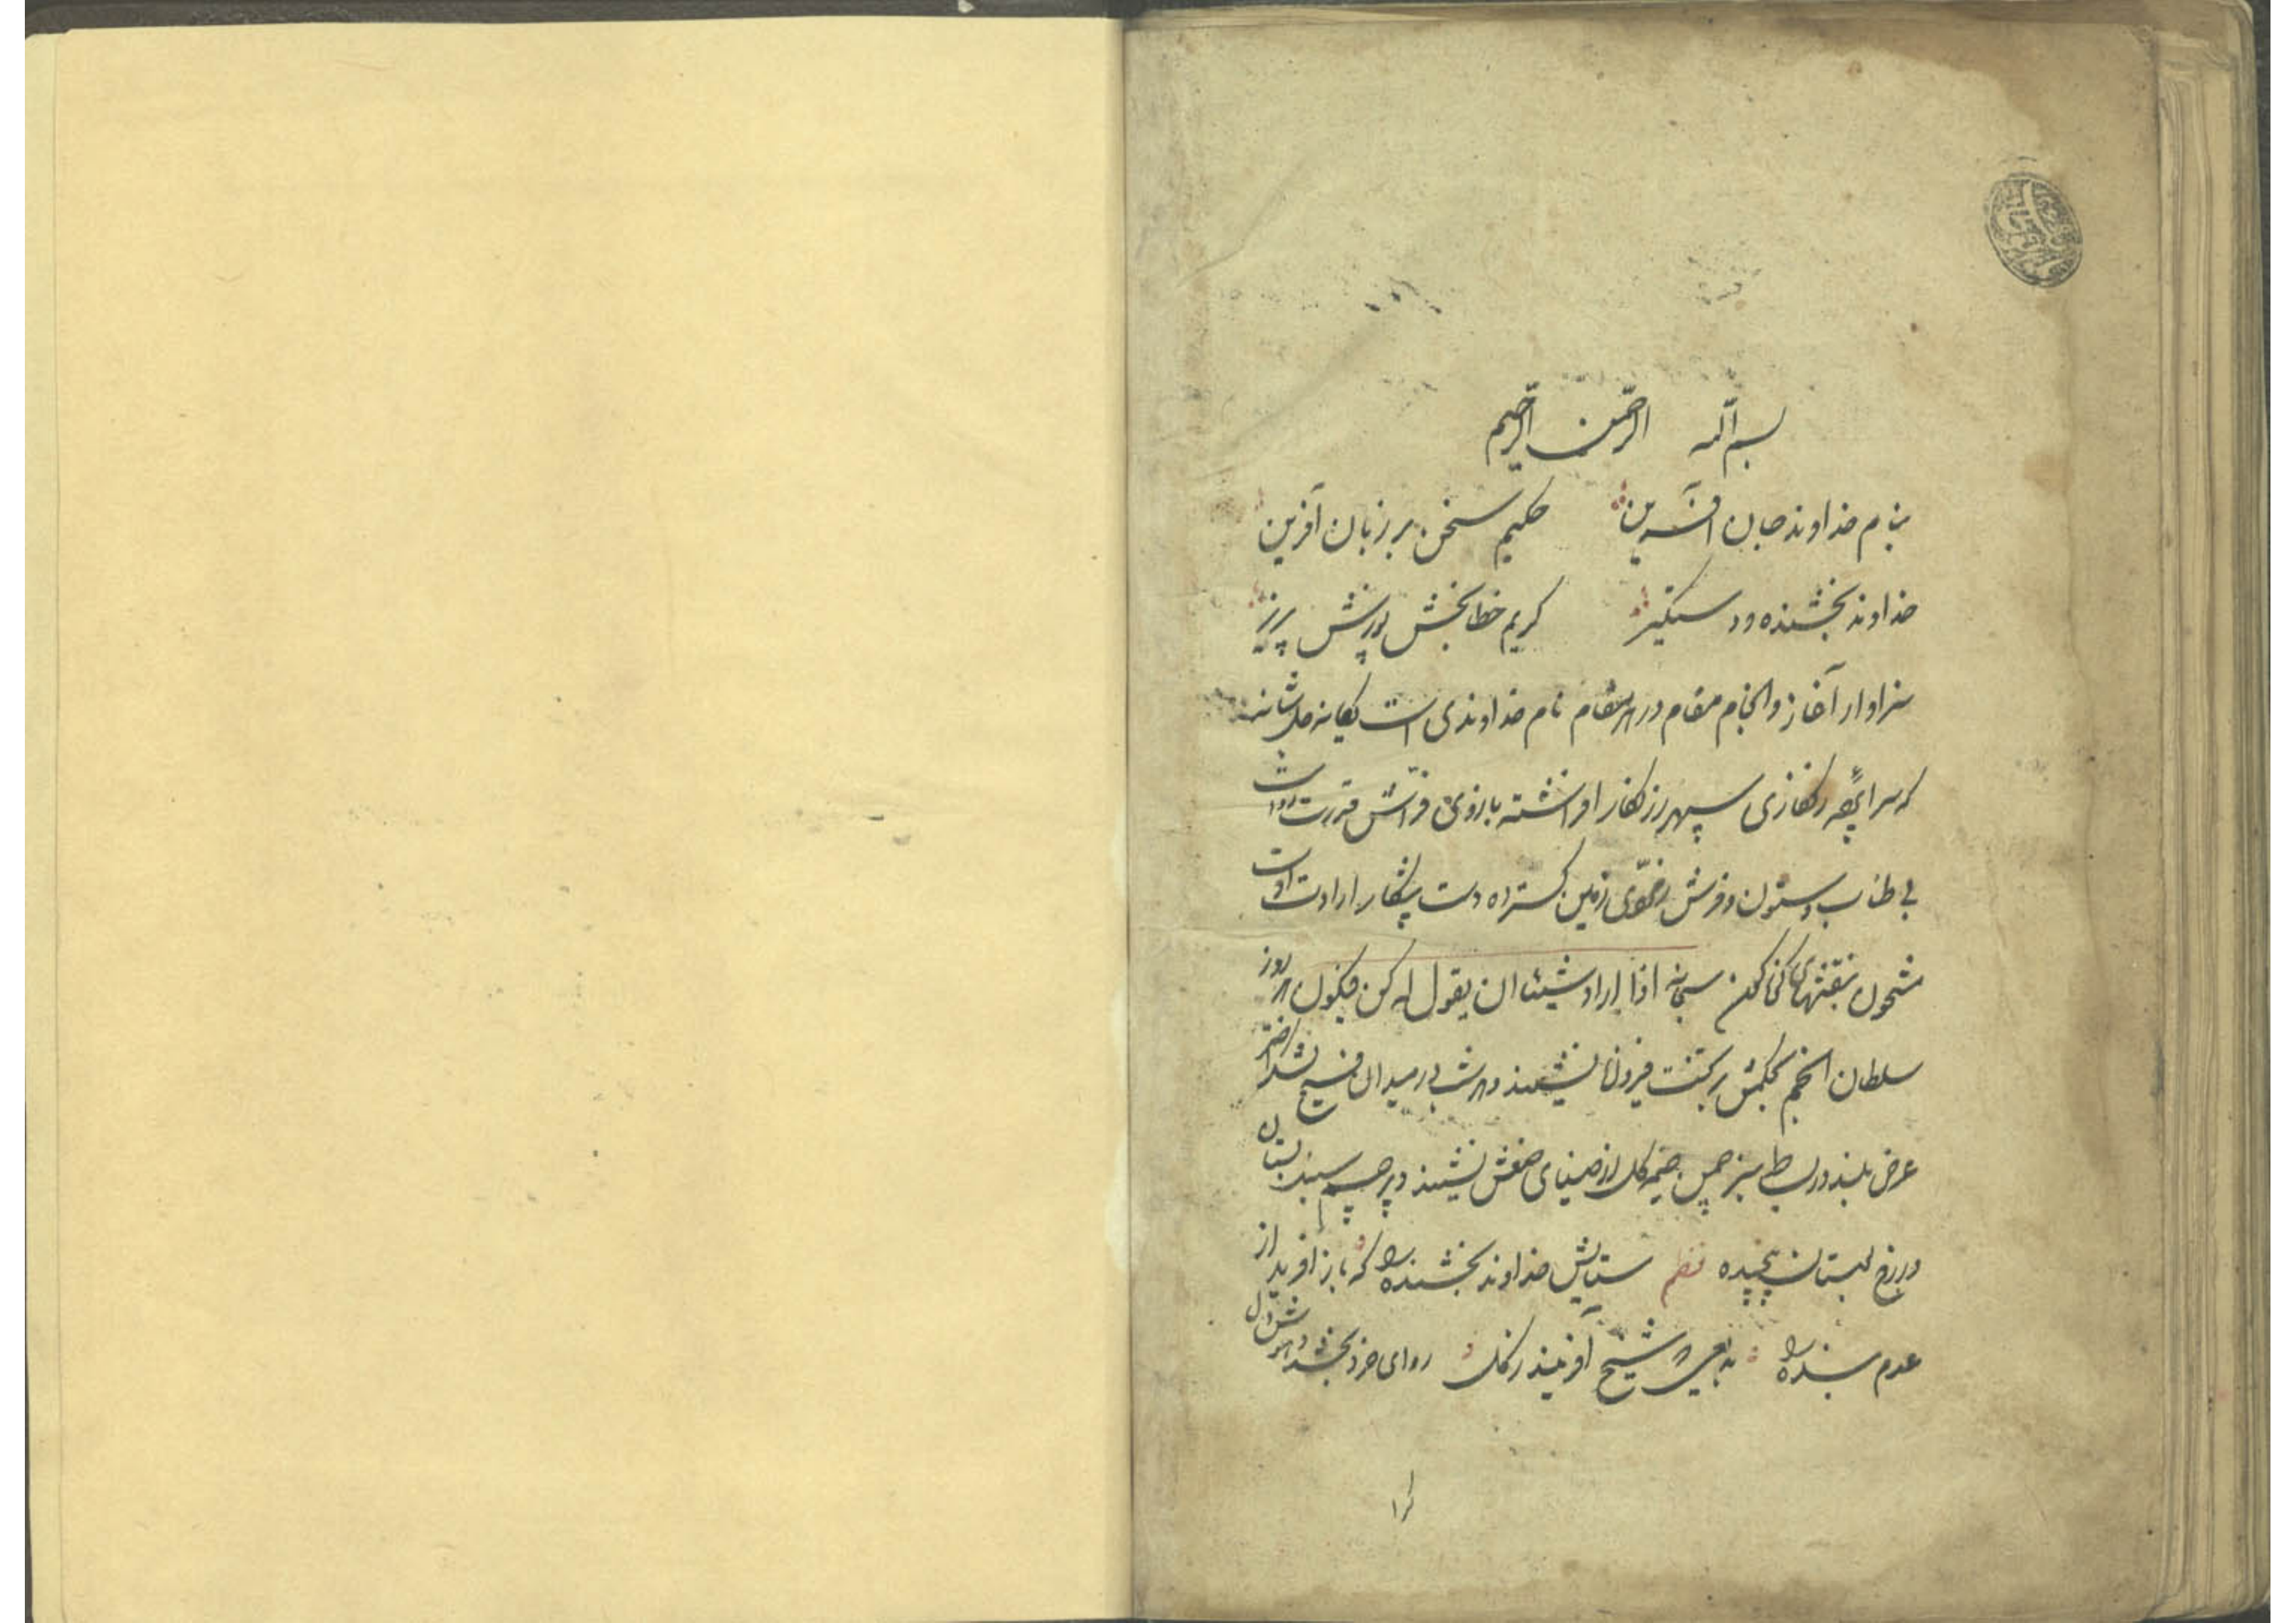 بسم الله الرحمن الرحیم
بنام خداوند جان آفرین حکیم سخن بر زبان آفرین
خداوند بخشنده و دستگیر کریم خطابخش پوزش پذیر
سزاوار آغاز و انجام مقام در هر مقام نام خداوندی است یگانه جل شانه
که سراپچه زنگاری سپهر زرنگار افراشته بازوی فراش قدرت اوست
بی طناب و ستون و فرش زمین گسترده دست پیشکار ارادت اوست
مشحون بنقشهای سبحانه اذا اراد شیئا ان یقول له کن فیکون هر روز
سلطان انجم بحکمش بر تخت نشیند و هر شب در میدان فسیح
عرض بلند و بسیط سبز چمن خیمه گل از صنعش نشیند و پرچم
در باغ و بستان پیچیده نظم ستایش خداوند بخشنده را که باز آفرید از
عدم بنده را بدیعی که شخص آفریند ز گل روان و خرد بخشد و هوش و دل
کرا